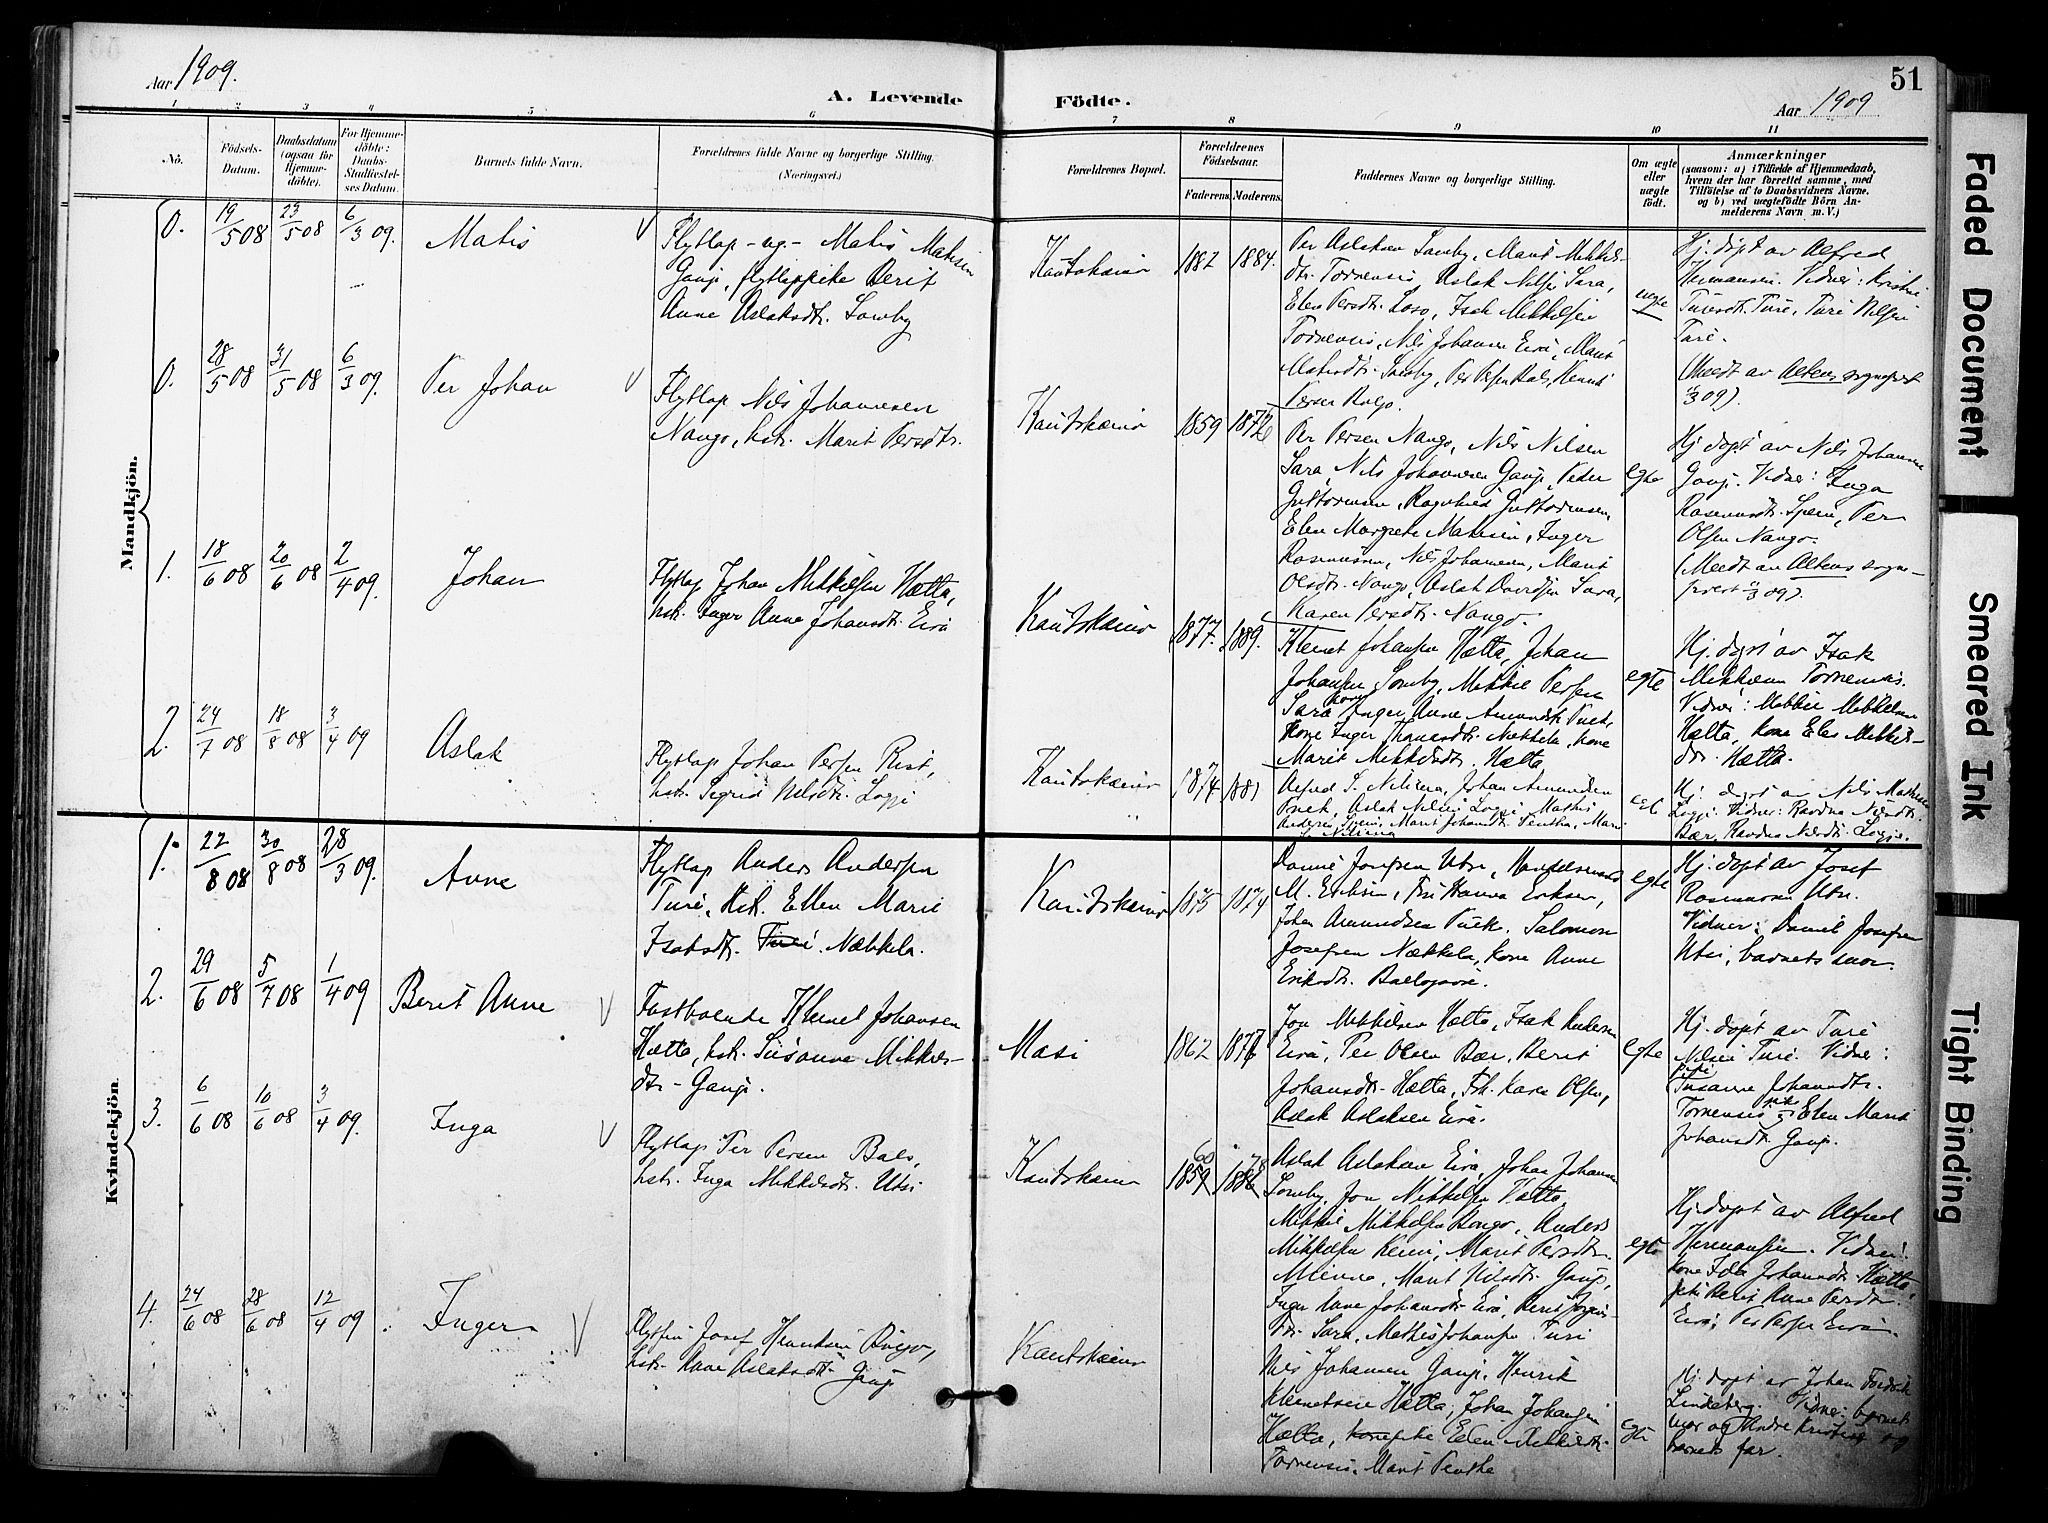 Aar 1909.
A. Levende Födte.
Aar 1909
51
1 2 3 4 5 6 7 8 9 10 11
Nô.
Födsels-
Datum.
Daabsdatum
(ogsaa for
Hjemme-
döbte).
For Hjemme-
döbte:
Daabs-
Stadfæstel-
ses Datum.
Barnets fulde Navn.
Forældrenes fulde Navne og borgerlige Stilling.
(Næringsvei.)
Forældrenes Bopæl.
Forældrenes
Födselsaar.
Faderens. Moderens.
Faddernes Navne og borgerlige Stilling.
Om ægte
eller
uægte
födt.
Anmærkninger
(saasom: a) i Tilfælde af Hjemmedaab,
hvem der har forrettet samme, med
Tilföielse af to Daabsvidners Navne,
og b) ved uægtefödte Börn An-
melderens Navn m. V.)
Mandkjön.
0. 19/5 08 23/5 08 6/3 09. Matis
Flytlap -ug- Matis Matisen
Gaup, flytlappike Berit
Anne Aslaksdtr. Somby
Kautokeino 1882 1884.
Per Aslaksen Somby, Marit Mikkels-
dtr. Tornensis, Aslak Nilsen Sara,
Elen Persdtr. Isak Mikkelsen
Tornensis, Nils Johansen Eira, Marit
Matisdtr. Somby, Per Persen Bals, Henrik
Persen
uegte
Hj. døpt av Alfred
Hermansen. Vidner: Kristine
Turesdtr. Turi, Turi Nilsen
Turi.
(Meedt av Altens sogneprest
/3 09).
0. 28/5 08 31/5 08 6/3 09. Per Johan
Flytlap Nils Johannesen
Nango, hstr. Marit Persdtr.
Kautokeino 1859
Per Persen Nango, Nils Nilsen
Sara, Nils Johannesen Gaup, Peder
Guttormsen, Ragnhild Guttormsen,
Elen Margrete Matisen, Inger
Rasmussen, Nils Johannesen, Marit
Olsdtr. Nango, Aslak Davidsen Sara,
Karen Persdtr. Nango.
egte
Hj. døpt av Nils Johannesen
Gaup. Vidner: Inga
Rasmusdtr. Spein, Per
Olsen Nango.
(Meedt av Altens sogne-
prest /3 09).
1. 18/6 08 20/6 08 2/4 09. Johan
Flytlap Johan Mikkelsen Hætta,
hstr. Inger Anne Johansdtr. Eira
Kautokeino 1877. 1889.
Klemet Johansen Hætta, Johan
Johansen Somby, Mikkel Persen
Sara, kone Inger Anne Amundsdtr.
Kone Inger Nekkela, kone
Marit Mikkelsdtr. Hætta
egte
Hj. døpt av Isak
Mikkelsen Tornensis.
Vidner: Mikkel Mikkelsen
Hætta, kone Elen Mikkels-
dtr. Hætta.
2. 24/7 08 18/8 08 3/4 09 Aslak
Flytlap Johan Persen Rist,
hstr. Sigrid Nilsdtr. Logje
Kautokeino 1874 1881
Alfred S. Nilsen, Johan Amundsen
Aslak Nilsen Logje, Mathis
Andersen Spein, Marit Johansdtr.
egte
Hj. døpt av Nils Mathisen
Logje. Vidner: Ravdna Nilsdtr.
Bær, Ravdna Nilsdtr. Logje.
Kvindekjön.
1. 22/8 08 30/8 08 28/3 09. Anne
Flytlap Anders Andersen
Turi, Hstr. Ellen Marie
Isaksdtr. Turi. Nækkela.
Kautokeino 1875 1874
Daniel Josefsen Utsi, Handelsmand
M. Eriksen, Hanna Eriksen,
Johan Amundsen Salomon
Josefsen Nækkela, kone Anne
Eriksdtr.
egte
Hj. døpt av Josef
Rasmussen Utsi.
Vidner: Daniel Josefsen
Utsi, barnets mor.
2. 29/6 08 5/7 08 1/4 09 Berit Anne
Fastboende Klemet Johansen
Hætta, hstr. Susanne Mikkels-
dtr. Gaup.
Masi 1862
Jon Mikkelsen Hætta, Isak
Eira, Per Olsen Bær, Berit
Johansdtr. Hætta, Frk. Kara Olsen,
Aslak Aslaksen Eira.
egte
Hj. døpt av Turi
Nilsen Turi. Vidner:
pike Susanne Johansdtr.
Tornensis, pike Elen Marit
Johansdtr. Gaup.
3. 6/6 08 10/6 08 3/4 09. Inga
Flytlap Per Persen Bals,
hstr. Inga Mikkelsdtr. Utsi
Kautokeino 1859 60 78
Aslak Aslaksen Eira, Johan Johansen
Somby, Jon Mikkelsen Hætta,
Mikkel Mikkelsen Bongo, Anders
Mikkelsen Keino, Marit Persdtr.
Mienna, Marit Nilsdtr. Gaup,
Inger Anne Johansdtr. Eira, Berit
dtr. Sara, Mathis Johansen Turi
egte
Hj. døpt av Alfred
Hermansen. Vidner:
kone Ida Johansdtr. Hætta,
pike Berit Anne Persdtr.
Eira, Per Persen Eira.
4. 24/6 08 28/6 08 12/4 09. Inger
Josef Henriksen
hstr. Anne Aslaksdtr. Gaup
Kautokeino
Nils Johansen Gaup, Henrik
Klemetsen Hætta, Johan Johansen
Hætta, pike Elen Mikkelsdtr.
Tornensis, Marit Penthe
egte
Hj. døpt av Johan Fredrik
Lindeberg. Vidner: barnets
mor og Andre Kristine og
barnets far.
Faded Document
Smeared Ink
Tight Binding